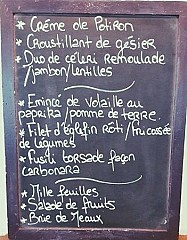 * Crème de Potiron
* Croustillant de gésier
* Duo de céleri remoulade
/jambon/lentilles
* Emincé de Volaille au
paprika/pomme de terre.
* Filet d'églefin rôti/fricassée
de légumes
* Fusili torsade façon
carbonara
* Mille feuilles
* Salade de fruits
* Brie de Meaux